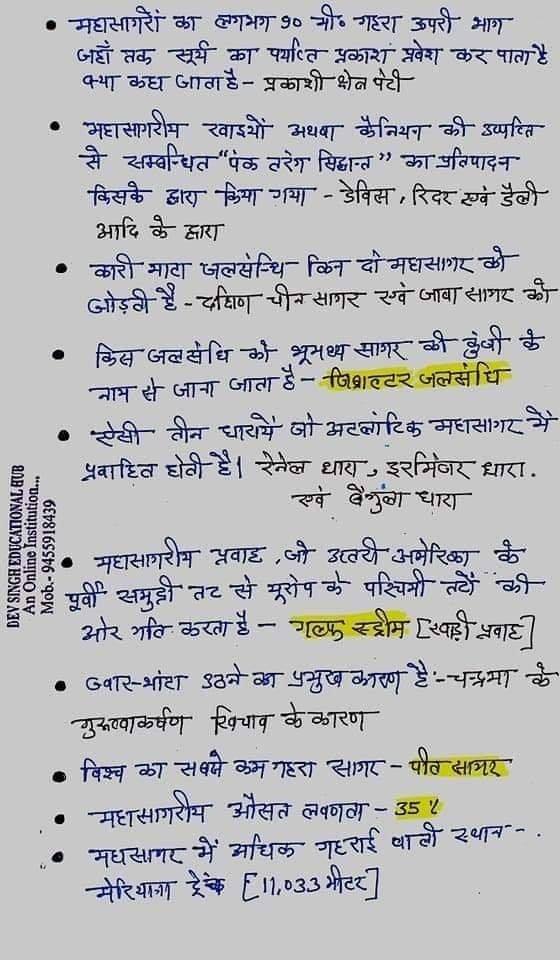 महासागरों का लगभग 90 मी० गहरा ऊपरी भाग
जहाँ तक सूर्य का पर्याप्त प्रकाश प्रवेश कर पाता है
क्या कहा जाता है - प्रकाशी क्षेत्र पेटी
महासागरीय खाइयों अथवा कैनियन की उत्पत्ति
से सम्बन्धित "पंक तरंग सिद्धान्त" का प्रतिपादन
किसके द्वारा किया गया - डेविस, रिटर एवं डैली
आदि के द्वारा
कारी माटा जलसन्धि किन दो महासागर को
जोड़ती है - दक्षिण चीन सागर एवं जावा सागर को
किस जलसंधि को भूमध्य सागर की कुंजी के
नाम से जाना जाता है - जिब्राल्टर जलसंधि
ऐसी तीन धारायें जो अटलांटिक महासागर में
प्रवाहित होती है। रेनेल धारा, इरमिंजर धारा.
एवं बेंगुला धारा
DEV SINGH EDUCATIONAL HUB
An Online Institution...
Mob.- 9455918439
महासागरीय प्रवाह, जो उत्तरी अमेरिका के
पूर्वी समुद्री तट से यूरोप के पश्चिमी तटों की
ओर गति करता है - गल्फ स्ट्रीम [खाड़ी प्रवाह]
ज्वार-भांटा उठने का प्रमुख कारण है:- चन्द्रमा के
गुरुत्वाकर्षण खिचाव के कारण
विश्व का सबसे कम गहरा सागर - पीत सागर
महासागरीय औसत लवणता - 35 %
महासागर में अधिक गहराई वाला स्थान - .
मेरियाना ट्रेंच [11,033 मीटर]